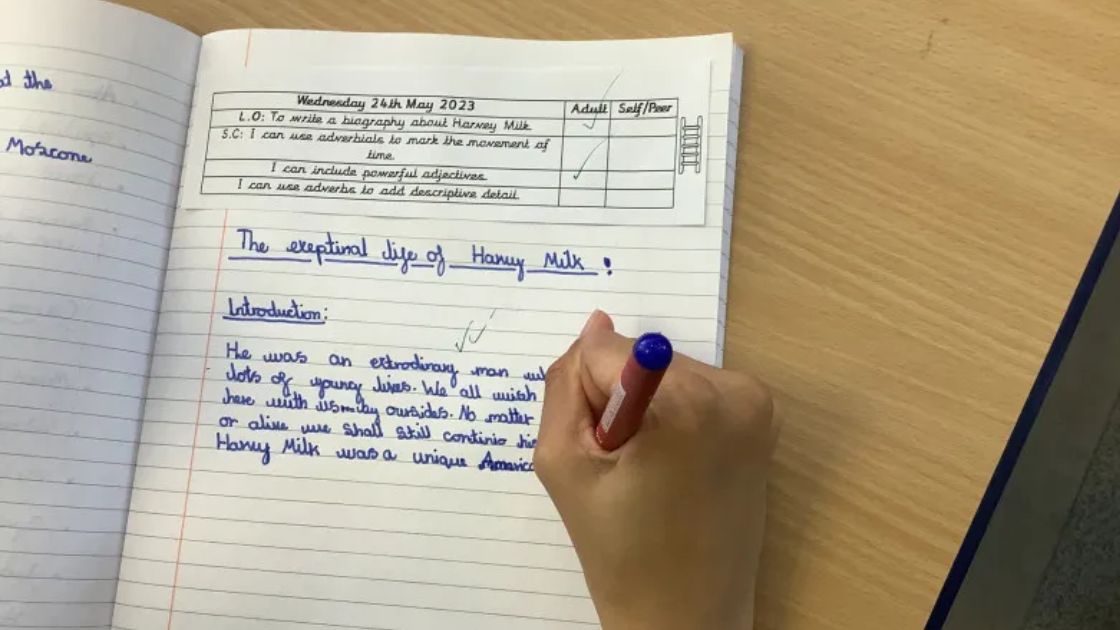 at the
Moscone
Wednesday 24th May 2023 Adult Self/Peer
L.O: To write a biography about Harvey Milk
S.C: I can use adverbials to mark the movement of
time.
I can include powerful adjectives.
I can use adverbs to add descriptive detail.
The exeptinal life of Harvey Milk!
Introduction:
He was an extrodinary man
lots of young lives. We all wish
here with us by oursides. No matter
or alive we shall still continio his
Harvey Milk was a unique